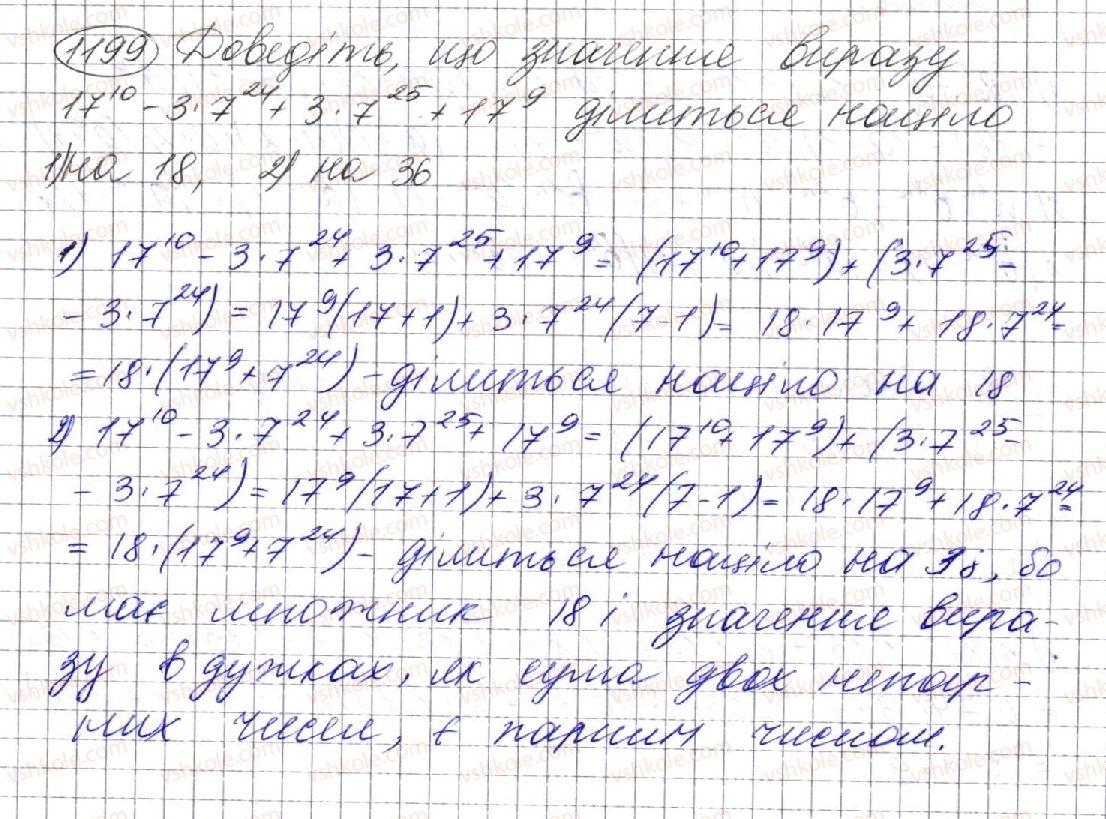 1199 Доведіть, що значение виразу
17¹⁰ - 3·7²⁴ + 3·7²⁵ + 17⁹ ділиться націло
1) на 18, 2) на 36
1) 17¹⁰ - 3·7²⁴ + 3·7²⁵ + 17⁹ = (17¹⁰ + 17⁹) + (3·7²⁵ -
- 3·7²⁴) = 17⁹(17+1) + 3·7²⁴(7-1) = 18·17⁹ + 18·7²⁴ =
= 18·(17⁹ + 7²⁴) - ділиться націло на 18
2) 17¹⁰ - 3·7²⁴ + 3·7²⁵ + 17⁹ = (17¹⁰ + 17⁹) + (3·7²⁵ -
- 3·7²⁴) = 17⁹(17+1) + 3·7²⁴(7-1) = 18·17⁹ + 18·7²⁴ =
= 18·(17⁹ + 7²⁴) - ділиться націло на 36, бо
має множник 18 і значение вира-
зу в дужках, як сума двох непар-
них чисел, є парним числом.